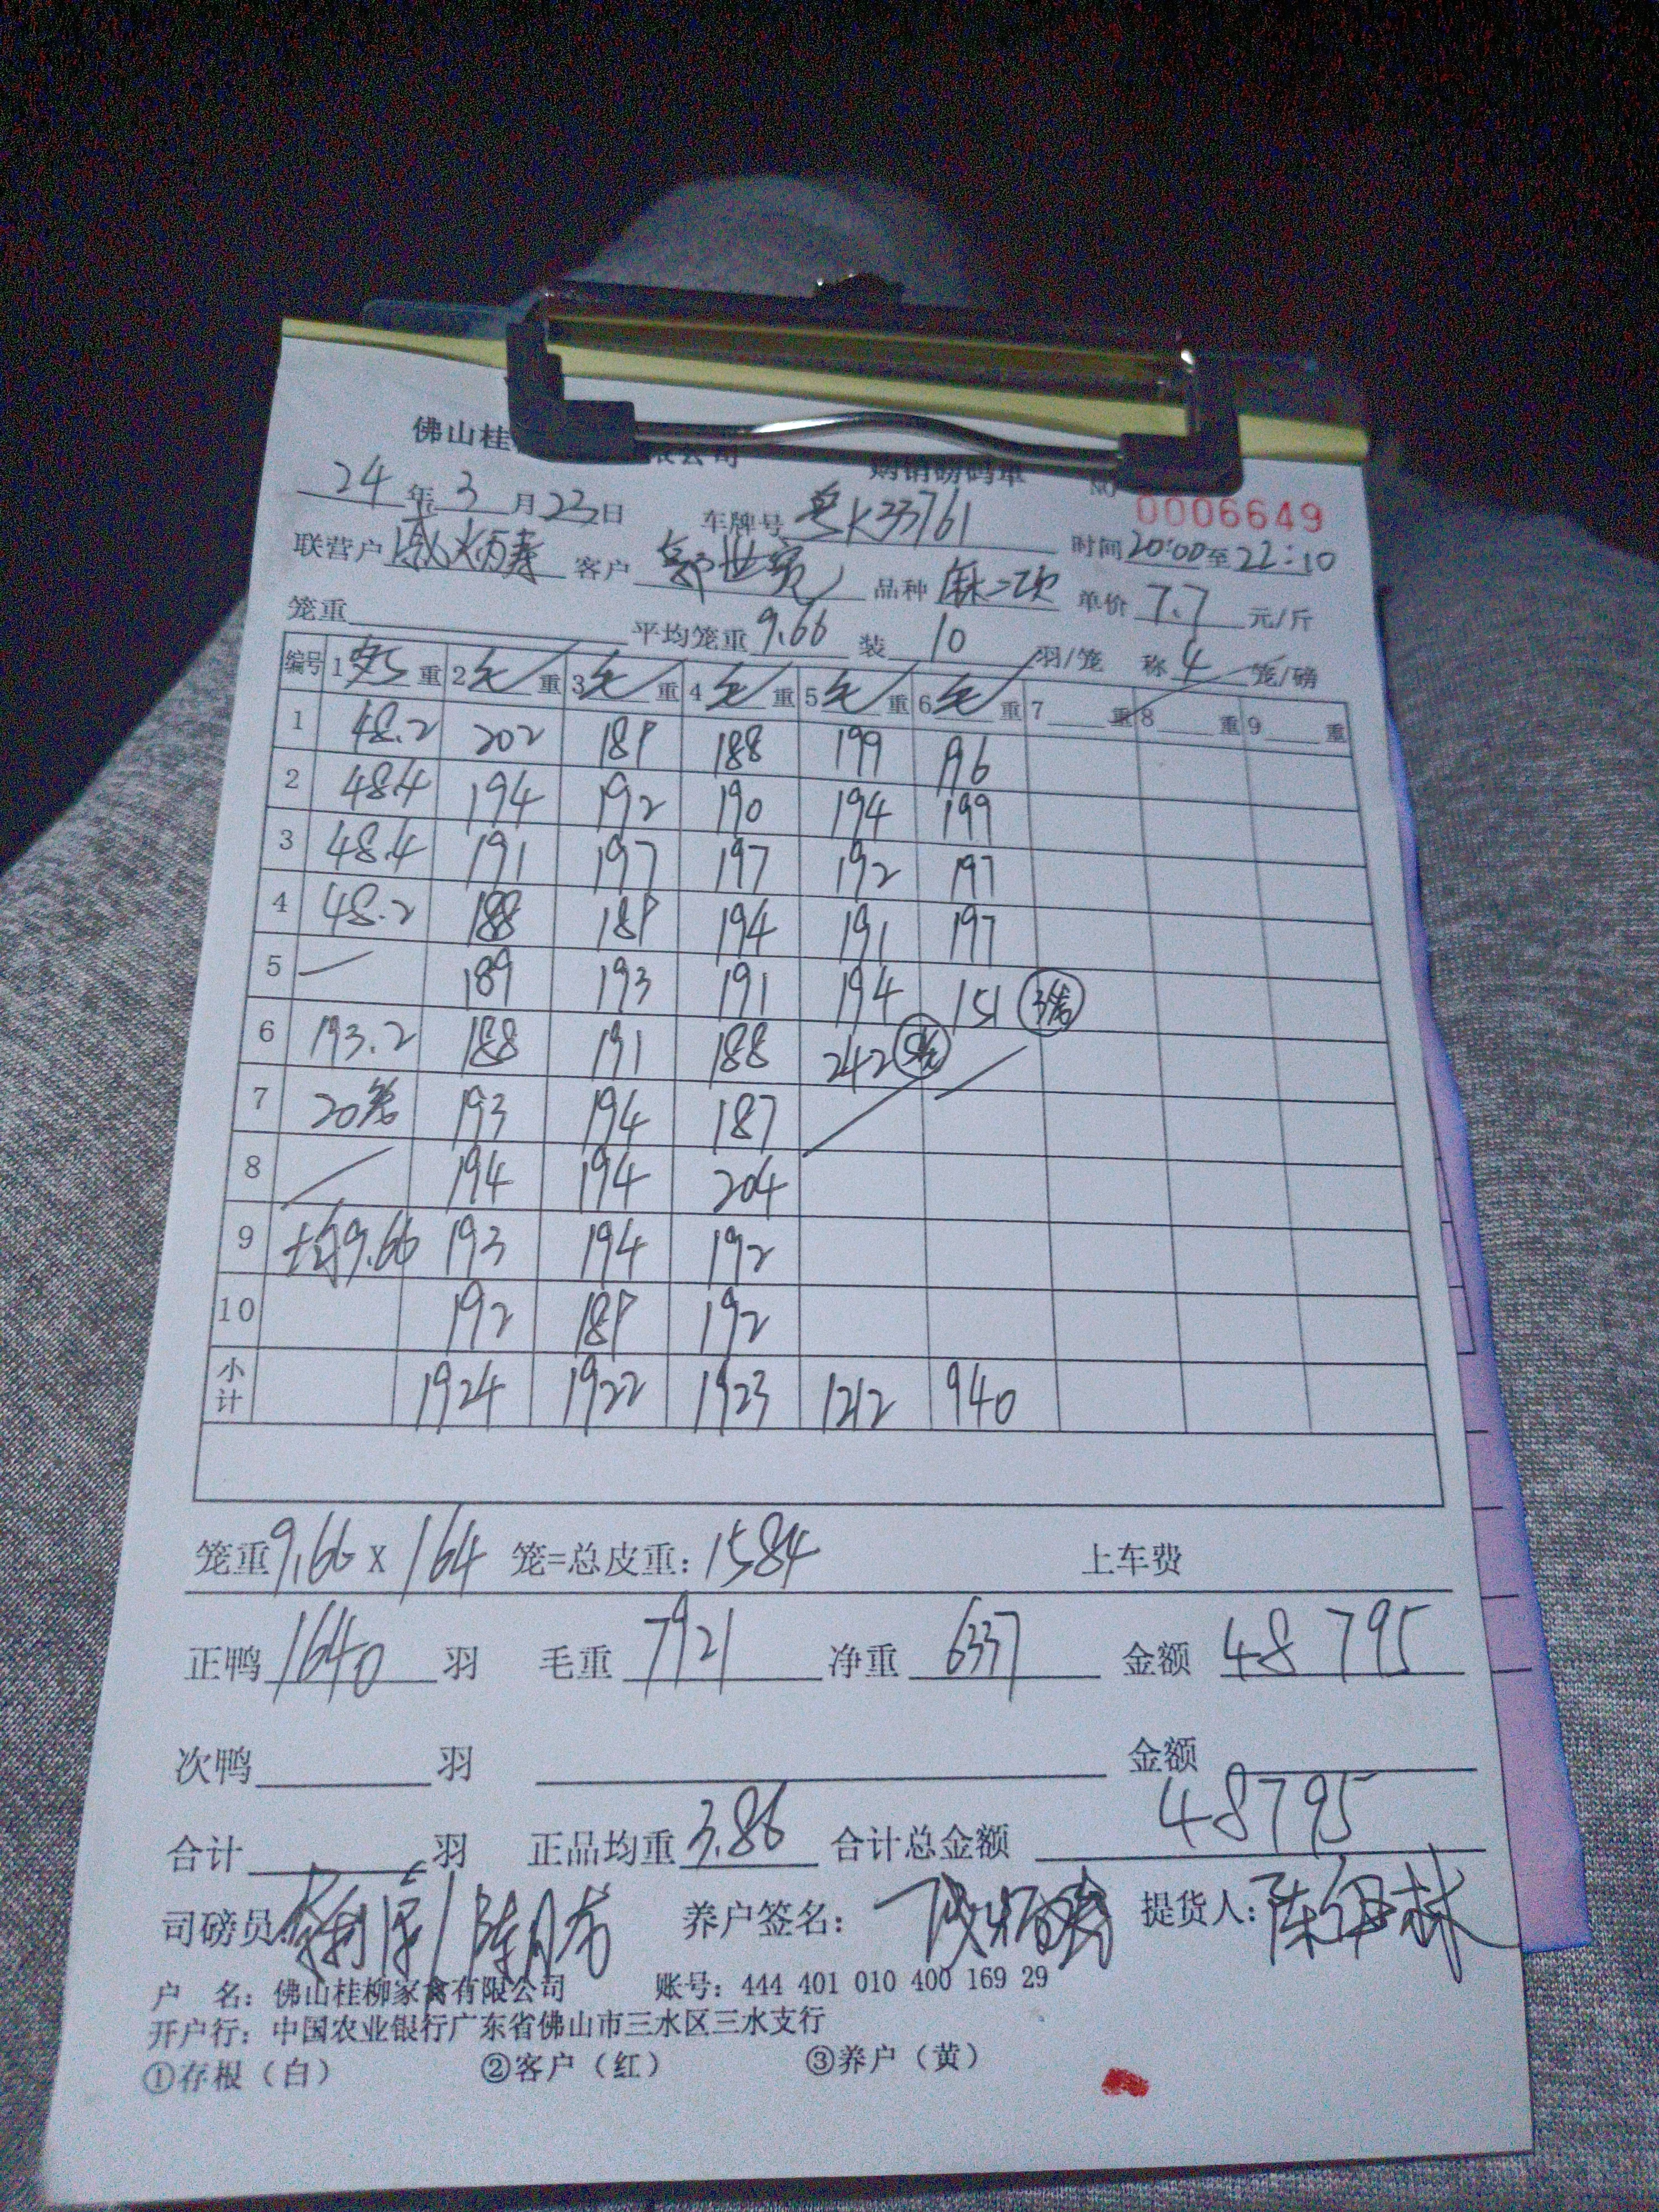 佛山桂 限公司 购销磅码单 NO 0006649
24 年 3 月 23 日 车牌号 粤K33761 时间 20:00 至 22:10
联营户 客户 郭业 品种 单价 7.7 元/斤
笼重 平均笼重 9.66 装 10 羽/笼 称 4 笼/磅
编号 1 重 2 毛 重 3 毛 重 4 毛 重 5 毛 重 6 毛 重 7 重 8 重 9 重
1 48.2 202 189 188 199 196
2 48.4 194 192 190 194 199
3 48.4 191 197 197 192 197
4 48.2 188 189 194 191 197
5 189 193 191 194 151 3笼
6 193.2 188 191 188 242 5笼
7 20笼 193 194 187
8 194 194 204
9 均9.66 193 194 192
10 192 189 192
小计 1924 1922 1923 1212 940
笼重 9.66 x 164 笼=总皮重: 1584 上车费
正鸭 1640 羽 毛重 7921 净重 6337 金额 48795
次鸭 羽 金额
合计 羽 正品均重 3.86 合计总金额 48795
司磅员: 养户签名: 提货人:
户 名: 佛山桂柳家禽有限公司 账号: 444 401 010 400 169 29
开户行: 中国农业银行广东省佛山市三水区三水支行
①存根（白） ②客户（红） ③养户（黄）